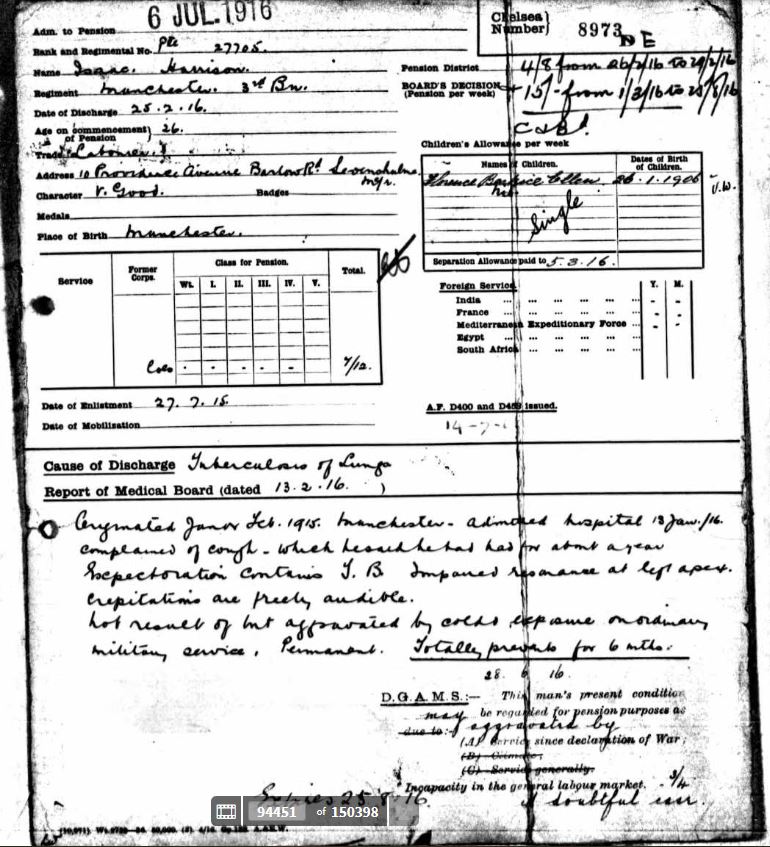 6 JUL.1916
Chelsea Number} 8973 DE
Adm. to Pension
Rank and Regimental No. Pte 27705.
Name Isaac Harrison.
Regiment Manchester. 3rd Bn.
Date of Discharge 25.2.16.
Age on commencement of Pension} 26.
Trade Labourer
Address 10 Providence Avenue Barlow Rd Levenshulme M/r.
Character V. Good. Badges
Medals
Place of Birth Manchester.
Pension District
4/8 from 26/2/16 to 29/2/16
BOARD'S DECISION (Pension per week)
15/- from 1/3/16 to
Children's Allowance per week
Names of Children. Dates of Birth of Children.
Florence Ellen 26.1.1906
Single
Separation Allowance paid to 5.3.16.
Service Former Corps. Class for Pension. Total.
Wt. I. II. III. IV. V.
Colo - - - - - 7/12.
Foreign Service Y. M.
India ... ... ... ... - -
France ... ... ... ... - -
Mediterranean Expeditionary Force ... - -
Egypt ... ... ... ...
South Africa ... ... ... ...
Date of Enlistment 27.7.15.
Date of Mobilization
A.F. D400 and issued.
14-7-
Cause of Discharge Tuberculosis of Lungs
Report of Medical Board (dated 13.2.16. )
Originated Jan or Feb. 1915. Manchester - admitted hospital 13 Jan./16.
complained of cough - which he said he had had for about a year
Expectoration contains T.B. Impaired resonance at left apex.
crepitations are freely audible.
Not result of but aggravated by colds exposure on ordinary
military service. Permanent. Totally prevents for 6 mths.
28. 6 16.
D.G.A.M.S.:— This man's present condition
may be regarded for pension purposes as
due to:- aggravated by
(A) Service since declaration of War;
(B) Climate;
(C) Service generally.
Incapacity in the general labour market. 3/4
A doubtful case.
Expires 25.8.16
94451 of 150398